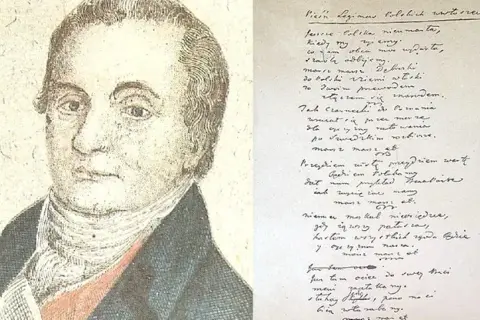 Pieśń Legionów Polskich we Włoszech
Jeszcze Polska nie umarła,
kiedy my żyjemy
co nam obca moc wydarła,
szablą odbijemy.
marsz marsz Dąbrowski
do Polski z ziemi włoski
za Twoim przewodem
złączem się z narodem.
Jak Czarnecki do Poznania
wracał się przez morze
dla ojczyzny ratowania
po szwedzkim rozbiorze.
marsz marsz etc.
Przejdziem Wisłę przejdziem Wartę
będziem Polakami
dał nam przykład Bonaparte
jak zwyciężać mamy
marsz marsz etc.
niemiec moskal nie osiędzie,
gdy jąwszy pałasza,
hasłem wszystkich zgoda będzie
y ojczyzna nasza.
marsz marsz etc.
już tam ociec do swej Basi
mówi zapłakany
słuchaj, pono nasi
biją w tarabany.
marsz marsz etc.